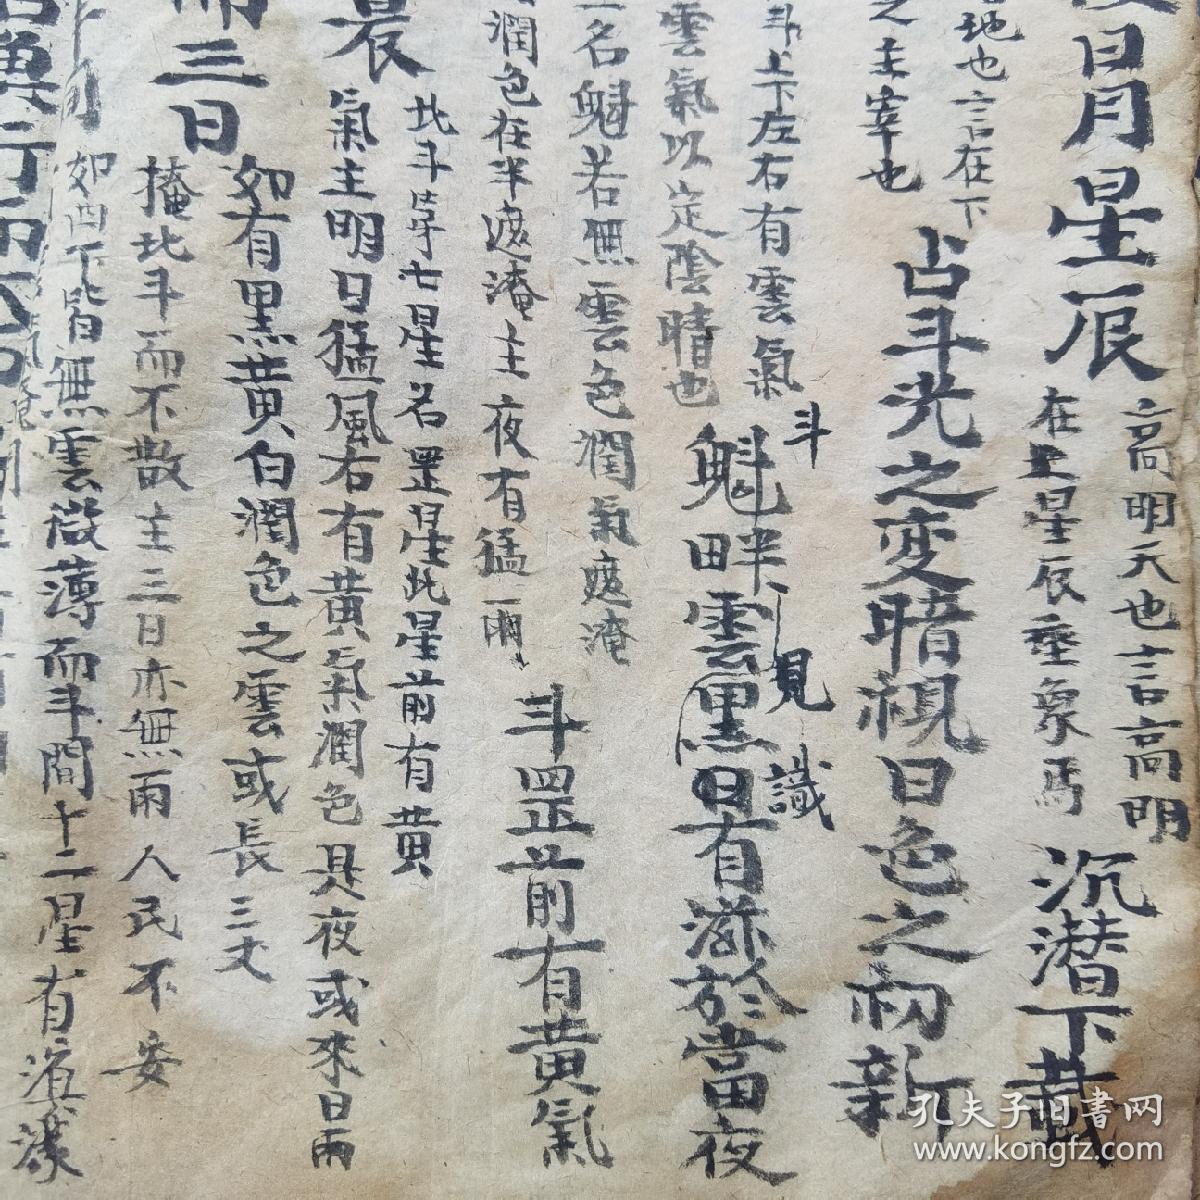 日月星辰
高明天也言高明
在上星辰垂象焉
沉潜下载
地也言在下
之主宰也
占斗光之变暗視日色之初新
斗上下左右有雲氣
雲氣以定陰晴也
斗
魁畔雲黑日有滋於當夜
見
識
名魁若無雲色潤氣遮淹
潤色在半遮淹主夜有猛雨
斗罡前有黄氣
北斗第七星名罡星此星前有黄
氣主明日猛風右有黄氣潤色是夜或來日雨
三日
如有黑黄白潤色之雲或長三丈
掩北斗而不散主三日亦無雨人民不安
如四下皆無雲微薄而斗間十二星有滋漾
孔夫子旧书网
www.kongfz.com